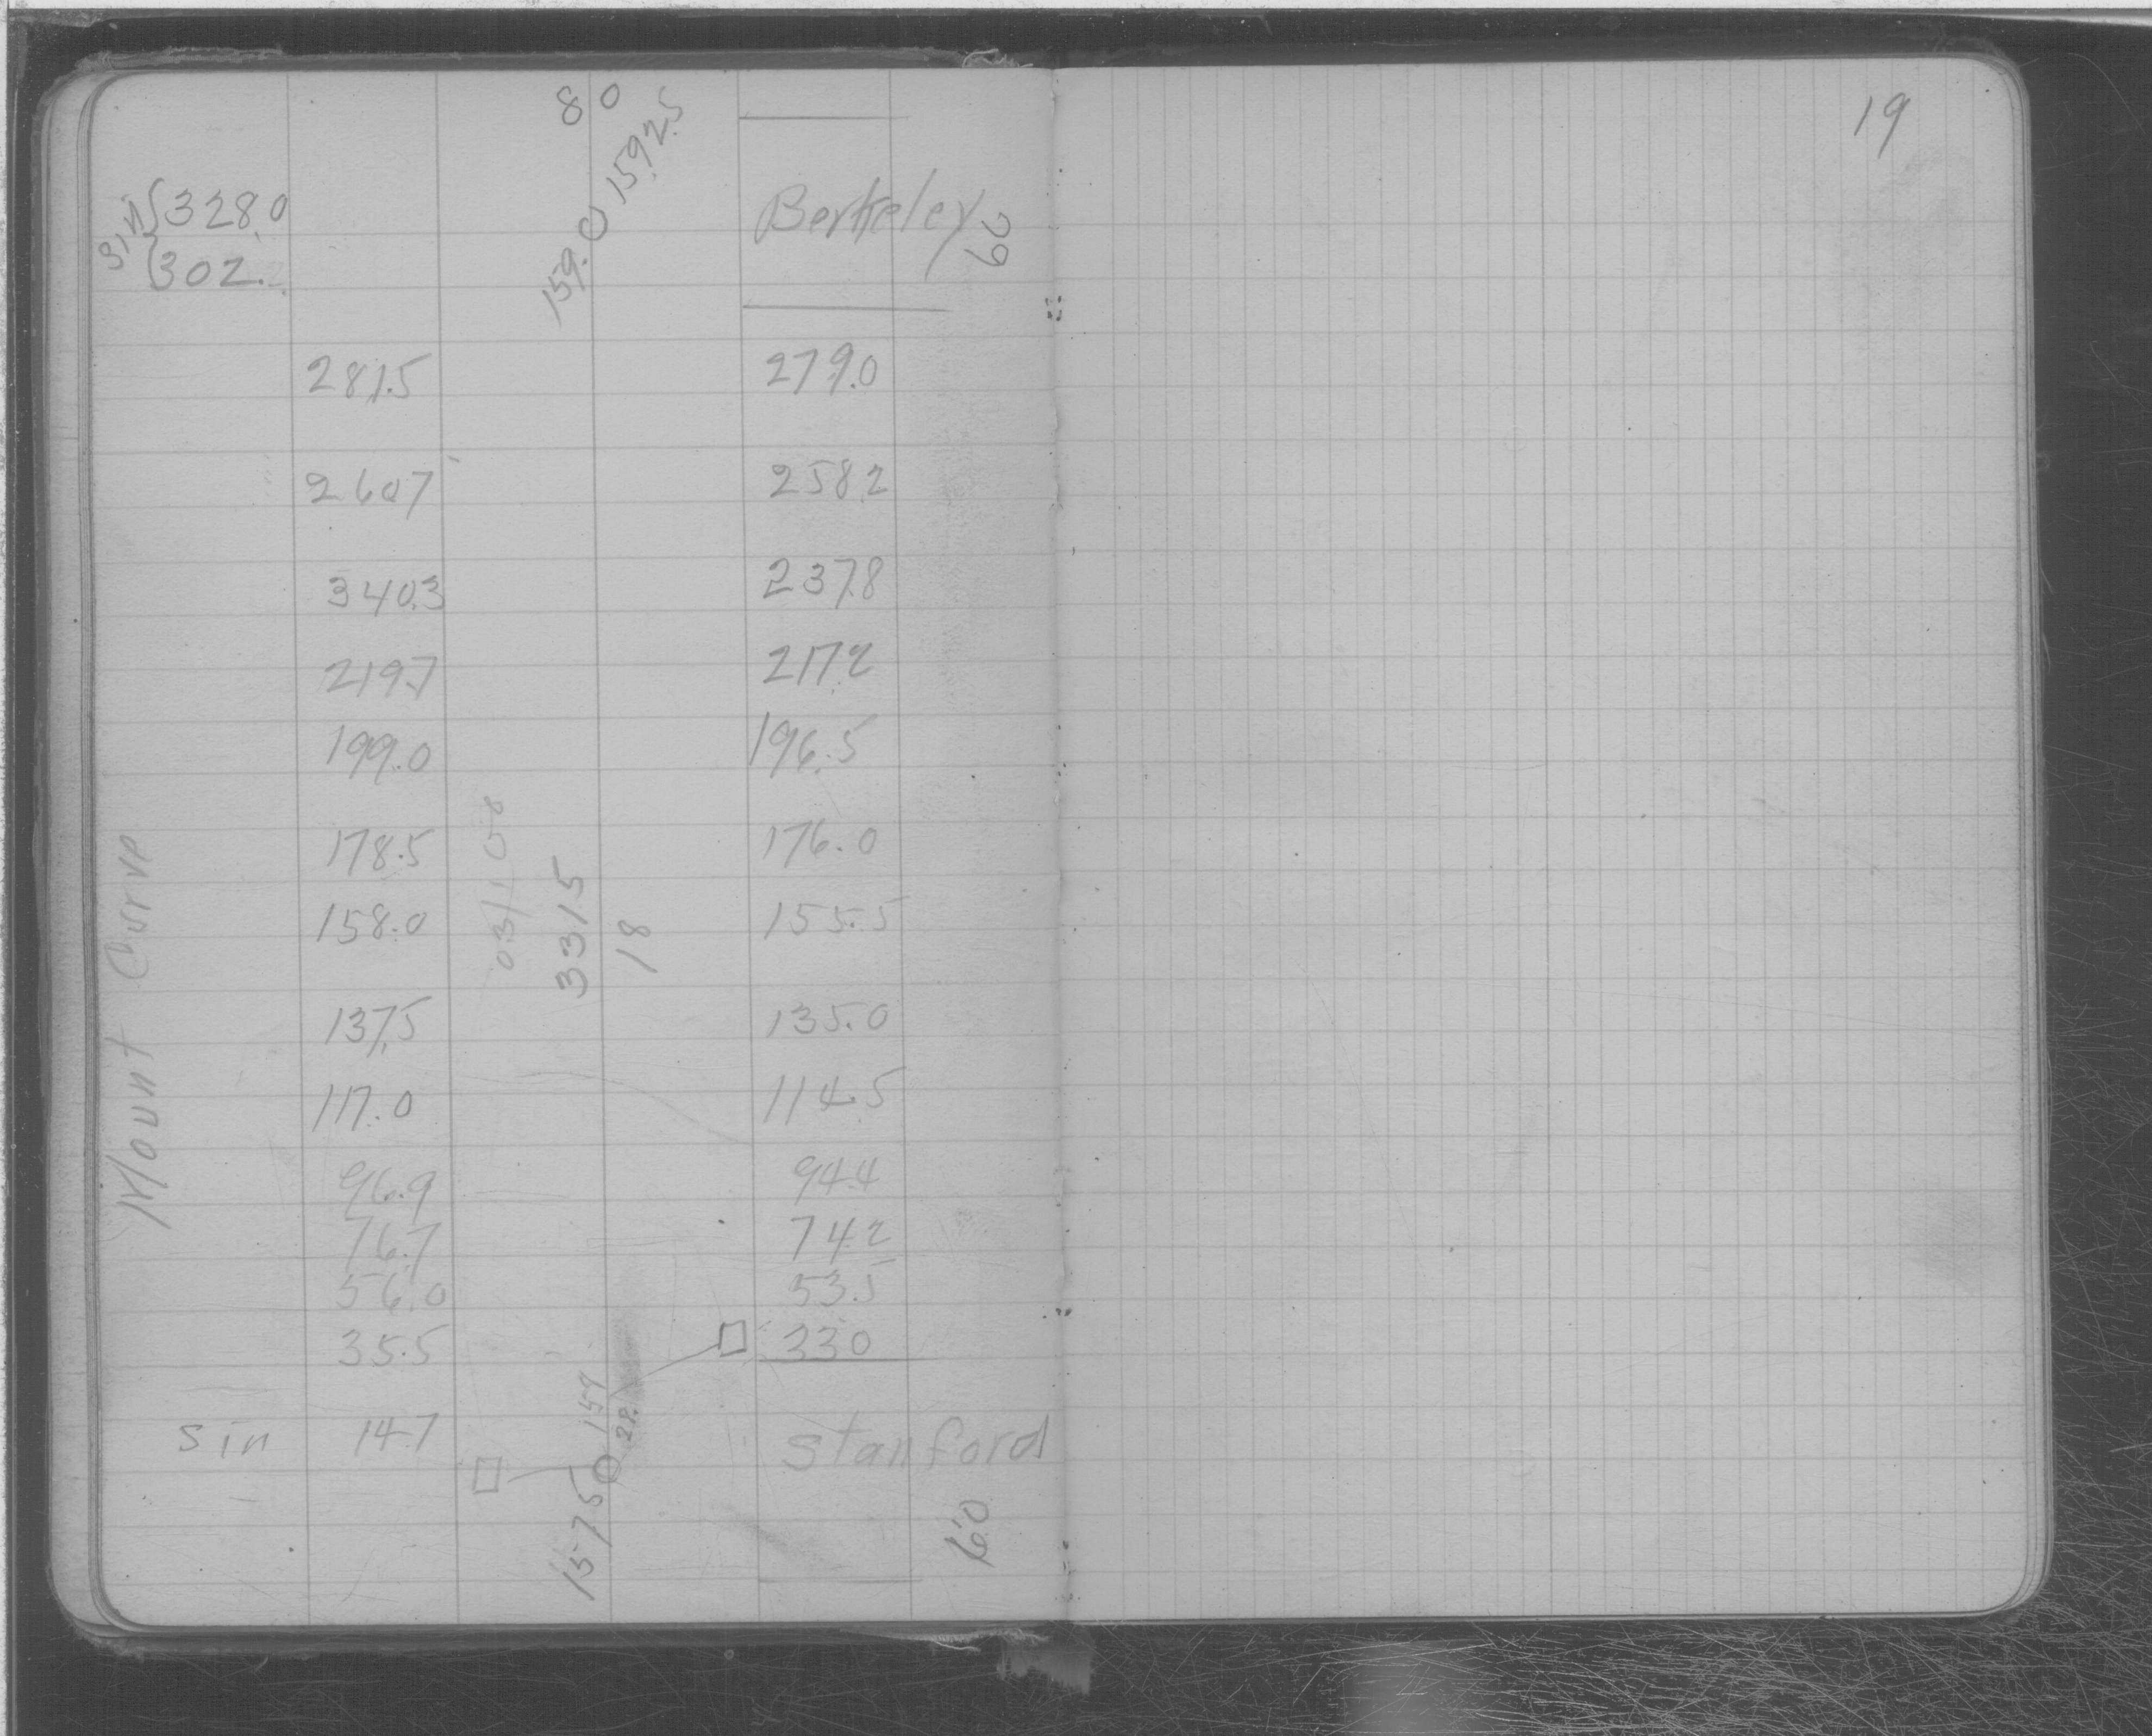 80
19
159.0 0 1592.5
sin 328.0 Berkeley 60
302.2
281.5 279.0
260.7 258.2
340.3 237.8
219.7 217.2
199.0 196.5
178.5 176.0
158.0 155.5
3315
18
137.5 135.0
Mount Curve
117.0 114.5
96.9 94.4
76.7 74.2
56.0 53.5
35.5 33.0
159
28.
sin 14.7 Stanford
157.50
60